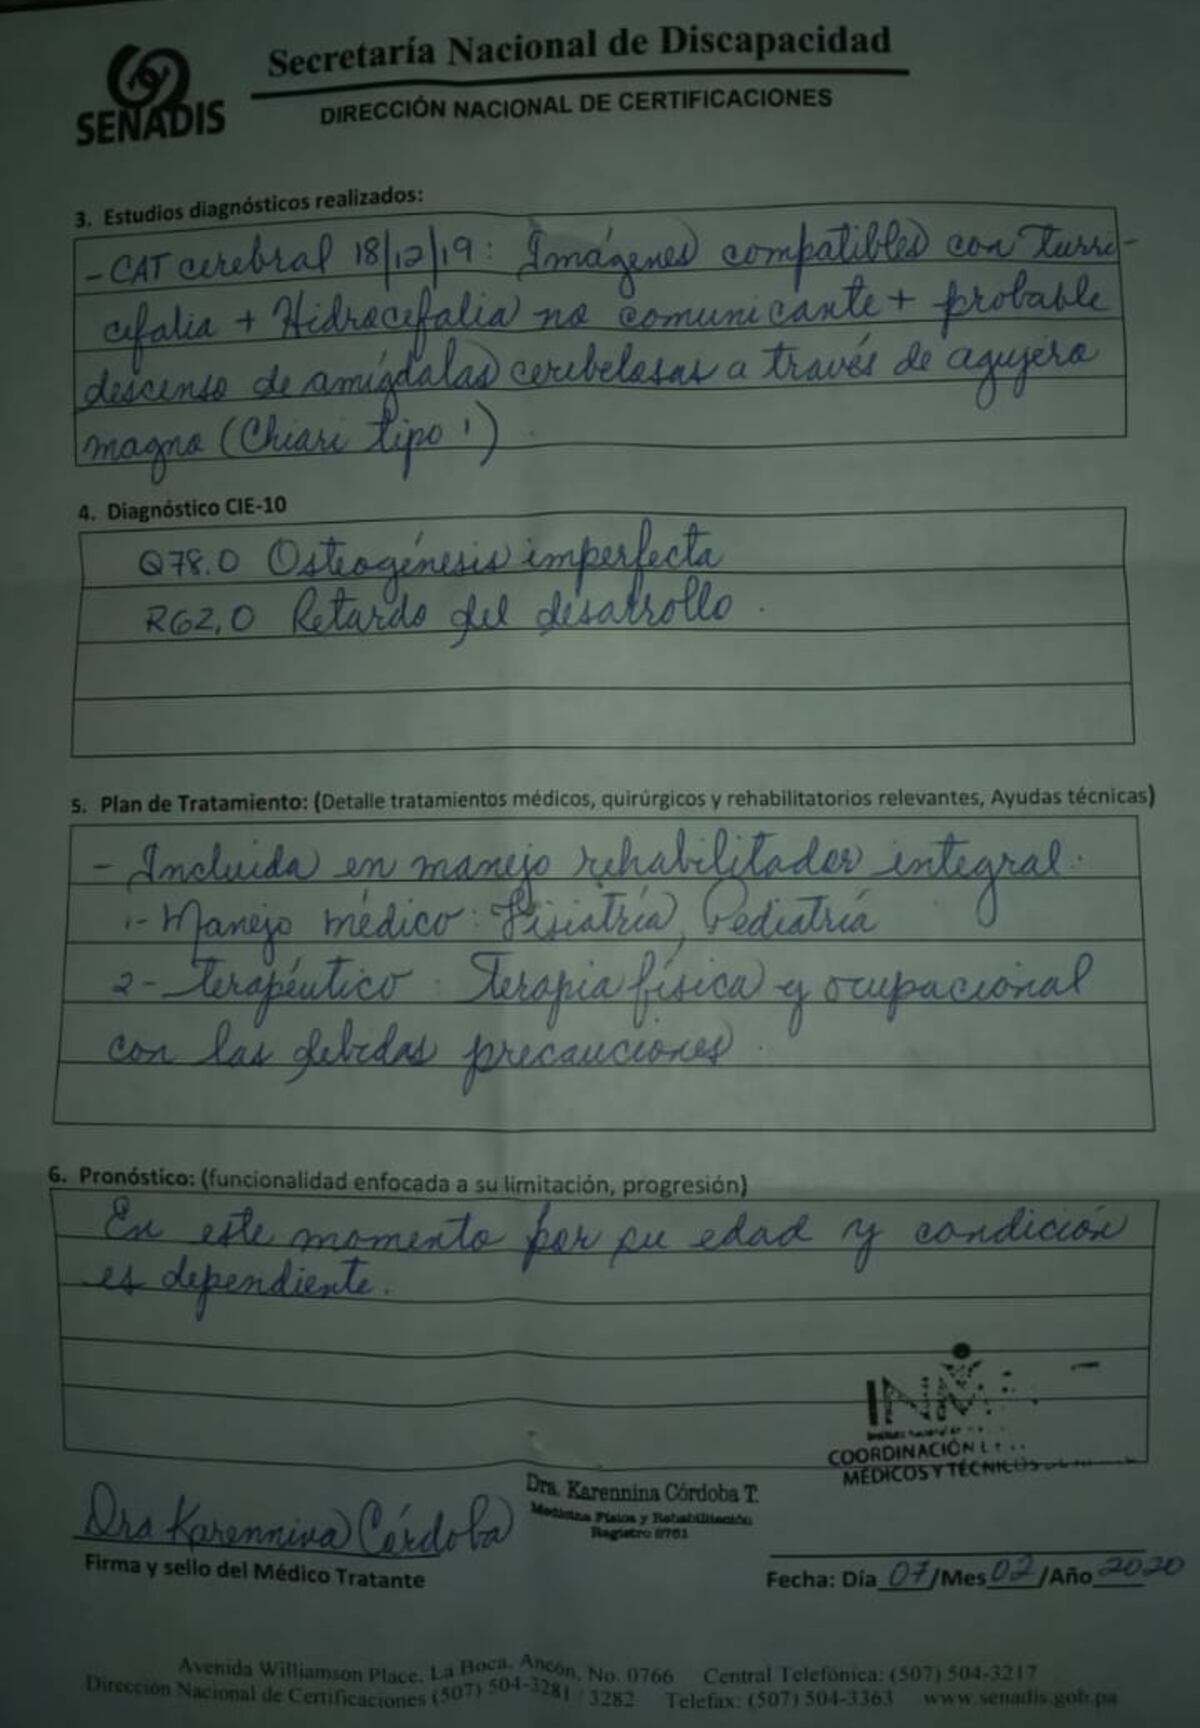 SENADIS
Secretaría Nacional de Discapacidad
DIRECCIÓN NACIONAL DE CERTIFICACIONES
3. Estudios diagnósticos realizados:
- CAT cerebral 18/12/19: Imágenes compatibles con Turri-
cefalia + Hidrocefalia no comunicante + probable
descenso de amígdalas cerebelosas a través de agujero
magno (Chiari tipo 1)
4. Diagnóstico CIE-10
Q78.0 Osteogénesis imperfecta
R62,0 Retardo del desarrollo.
5. Plan de Tratamiento: (Detalle tratamientos médicos, quirúrgicos y rehabilitatorios relevantes, Ayudas técnicas)
- Incluida en manejo rehabilitador integral.
1- Manejo médico: Fisiatría, Pediatría
2- Terapéutico: Terapia física y ocupacional
con las debidas precauciones.
6. Pronóstico: (funcionalidad enfocada a su limitación, progresión)
En este momento por su edad y condición
es dependiente.
INM
COORDINACIÓN
MÉDICOS Y TÉCNICOS
Dra. Karennina Córdoba T.
Medicina Física y Rehabilitación
Registro 0761
Dra Karennina Córdoba
Firma y sello del Médico Tratante
Fecha: Día 07/Mes 02/Año 2020
Avenida Williamson Place, La Boca, Ancón, No. 0766 Central Telefónica: (507) 504-3217
Dirección Nacional de Certificaciones (507) 504-3281 / 3282 Telefax: (507) 504-3363 www.senadis.gob.pa